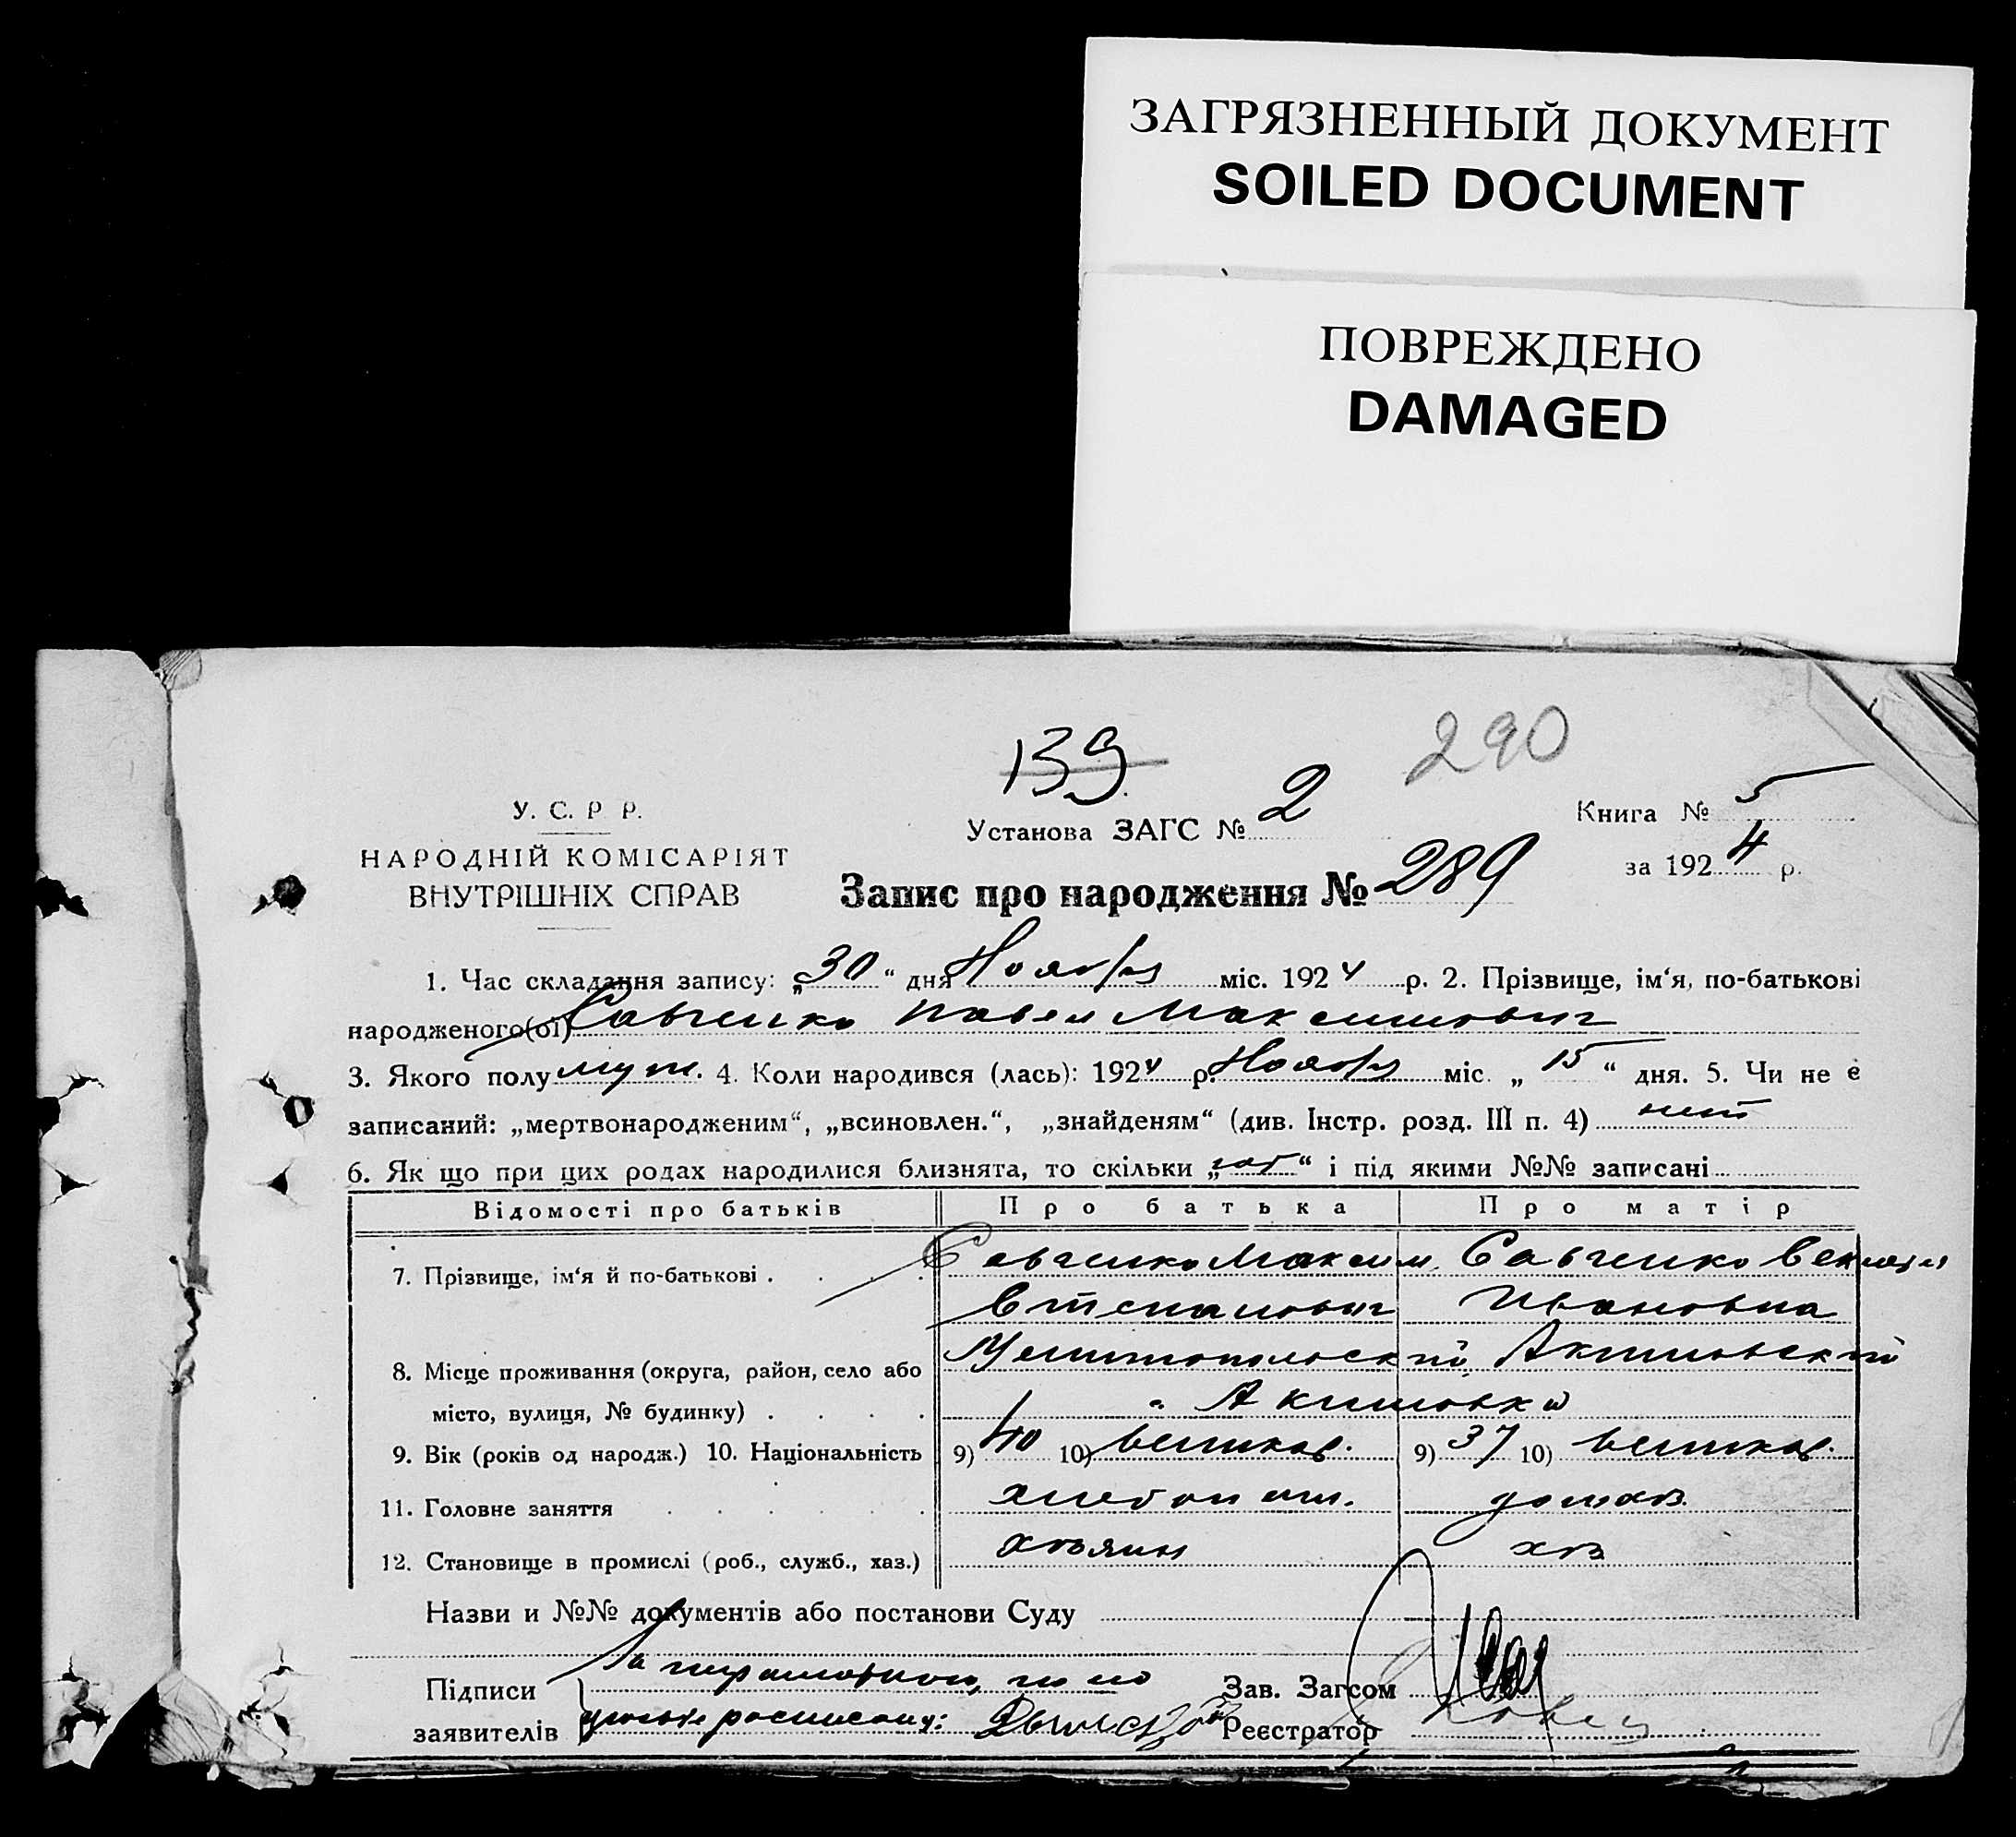 ЗАГРЯЗНЕННЫЙ ДОКУМЕНТ
SOILED DOCUMENT
ПОВРЕЖДЕНО
DAMAGED
139.
290
У. С. Р. Р.
НАРОДНІЙ КОМІСАРІЯТ
ВНУТРІШНІХ СПРАВ
Установа ЗАГС № 2
Книга № 5
за 1924 р.
Запис про народження № 289
1. Час складання запису: „30“ дня Ноября міс. 1924 р. 2. Прізвище, ім‘я, по-батькові
народженого(ої) Савченко Павел Максимович
3. Якого полу муж. 4. Коли народився (лась): 1924 р. Ноября міс. „15“ дня. 5. Чи не є
записаний: „мертвонародженим“, „всиновлен.“, „знайденям“ (див. Інстр. розд. III п. 4) нет
6. Як що при цих родах народилися близнята, то скільки „ “ і під якими №№ записані
Відомості про батьків Про батька Про матір
7. Прізвище, ім‘я й по-батькові . . . . Савченко Максим Савченко
Степанович Ивановна
8. Місце проживання (округа, район, село або Мелитопольский, Акимовский
місто, вулиця, № будинку) . . . . с. Акимовка
9. Вік (років од народж.) 10. Національність 9) 40 10) великор. 9) 37 10) великор.
11. Головне заняття . . . . . . хлебопаш. домхоз.
12. Становище в промислі (роб., служб., хаз.) хозяин хоз
Назви и №№ документів або постанови Суду
За неграмотного, по его
Підписи Зав. Загсом
заявителів просьбе росписался: Реєстратор